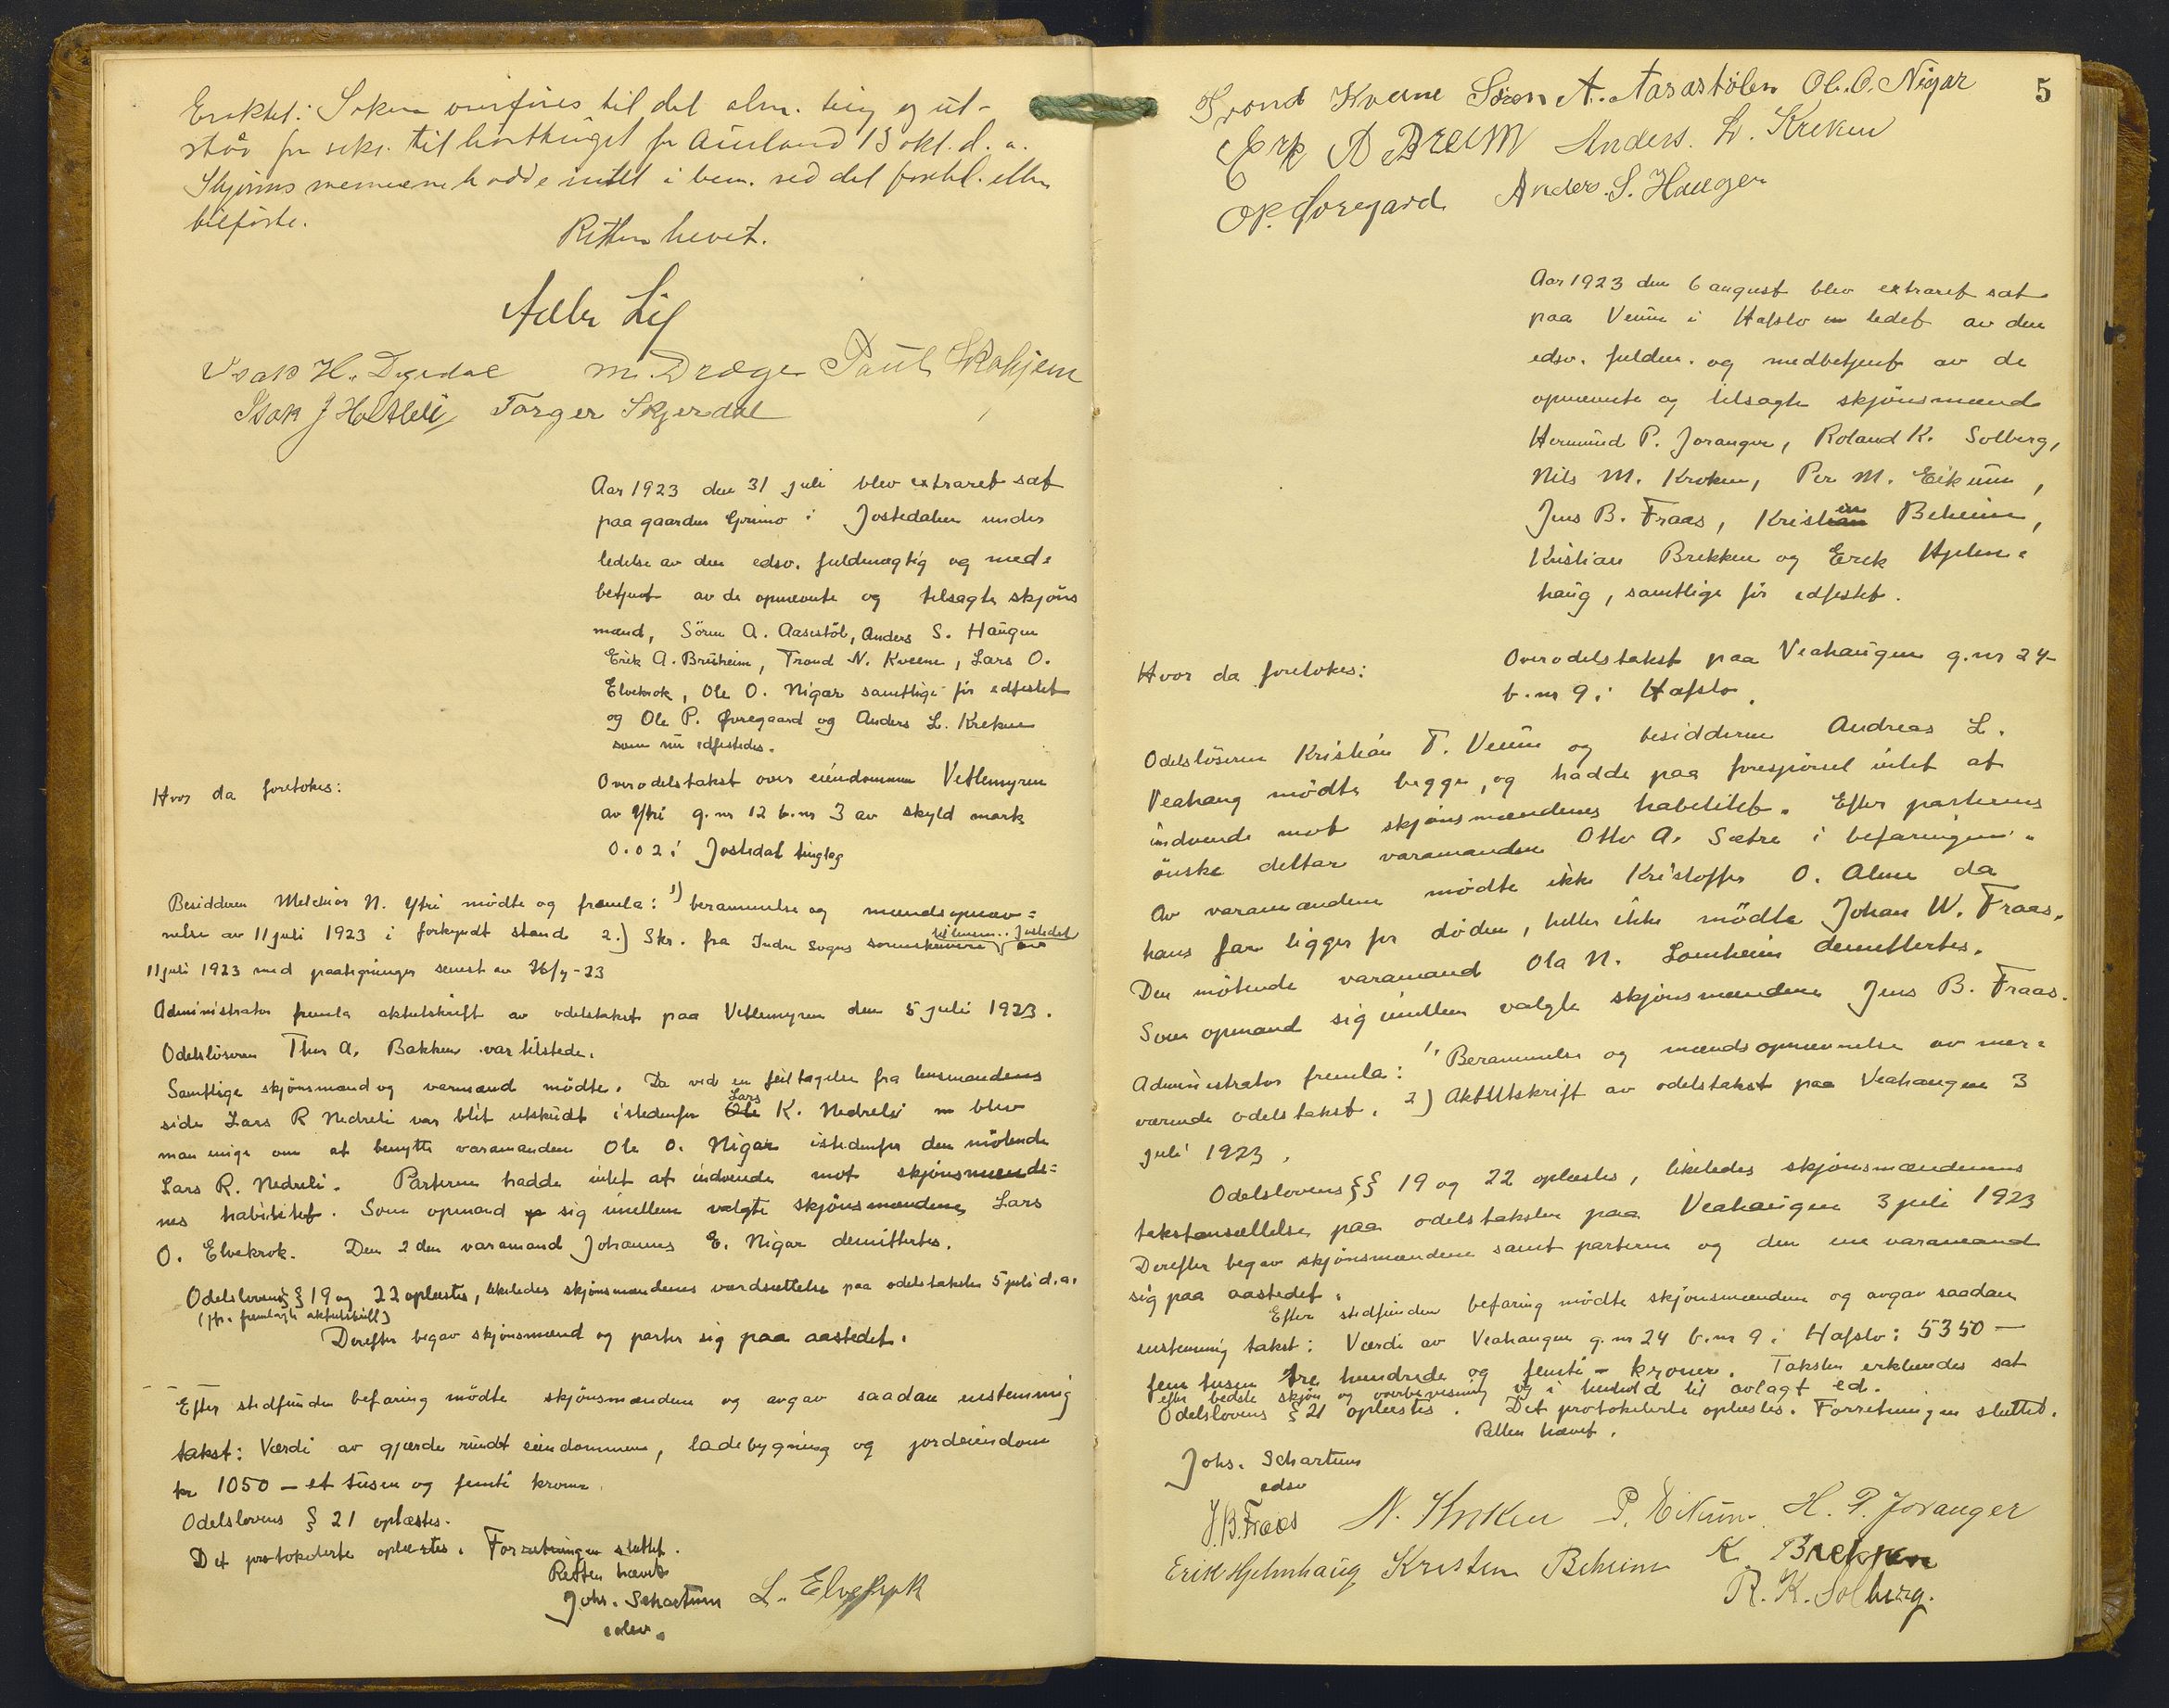 Enoktet: Saken overføres til det alm. ting og ut-
står for seks. til hosttinget for Aurland 13 okt. d. a.
Skjønnsmennene hadde intet i bem. ved det fortel. eller
tilførte.
Retten hevet.
Adler Lig
Isak H. Dyrdal M. Dræge Paul Skahjem
Isak J Holtleti Torger Skjerdal
Aar 1923 den 31 juli blev extraret sat
paa gaarden Grimo i Jostedalen under
ledelse av den edsv. fuldmægtig og med-
betjent av de opnævnte og tilsagte skjöns
mænd, Sören A. Aasestöl, Anders S. Haugen
Erik A. Bruheim, Trond N. Kveene, Lars O.
Elvekrok, Ole O. Nigar samtlige för edfestet
og Ole P. Øvregaard og Anders L. Kreken
som nu edfestedes.
Hvor da foretokes:
Overodelstakst over eiendommen Vetlemyren
av Ytri g.nr 12 b.nr 3 av skyld mark
0.02 i Jostedal tinglag
Besidderen Melchior N. Ytri mödte og fremla: 1) berammelse og mændsopnæv=
nelse av 11 juli 1923 i forkyndt stand 2.) Skr. fra Indre Sogns sorenskriveri til lensm. i Jostedal av
11 juli 1923 med paategninger senest av 26/7-23
Administrator fremla aktutskrift av odelstakst paa Vetlemyren den 5 juli 1923.
Odelslöseren Thor A. Bakken var tilstede.
Samtlige skjönsmænd og varamænd mödte. Da ved en feiltagelse fra lensmandens
side Lars R Nedreli var blit utskudt istedenfor Ole Lars K. Nedreli blev
man enige om at benytte varamanden Ole O. Nigar istedenfor den mötende
Lars R. Nedreli. Parterne hadde intet at indvende mot skjönsmænde=
nes habilitet. Som opmand sig imellem valgte skjönsmændene Lars
O. Elvekrok. Den 2den varamand Johannes E. Nigar demittertes.
Odelslovens §§ 19 og 22 oplæstes, likeledes skjönsmændenes værdsættelse paa odelstaksten 5 juli d.a.
(jfr. fremlagte aktutskrift)
Derefter begav skjönsmænd og parter sig paa aastedet.
Efter stedfunden befaring mödte skjönsmændene og avgav saadan enstemmig
takst: Værdi av gjærde rundt eiendommen, ladebygning og jordeiendom
kr 1050 — et tusen og femti kroner.
Odelslovens § 21 oplæstes.
Det protokolerte oplæstes. Forretningen sluttet.
Retten hævet
Johs. Schartum L. Elvekrok
edsv.
5
Trond Kveene Sören A. Aarastölen Ol. O. Nigar
Erk A Breim Anders. L. Kreken
O.P. Øvregard Anders. S. Haugen
Aar 1923 den 6 august blev extraret sat
paa Veum i Hafslo ledet av den
edsv. fuldm. og medbetjent av de
opnævnte og tilsagte skjönsmænd
Hermund P. Joranger, Roland K. Solberg,
Nils M. Kroken, Per M. Eikum,
Jens B. Fraas, Kristian en Beheim,
Kristian Brekken og Erik Hjelm-
haug, samtlige för edfestet.
Hvor da foretokes:
Overodelstakst paa Veahaugen g.nr 24
b.nr 9 i Hafslo.
Odelslöseren Kristian T. Veum og besidderen Andreas L.
Veahaug mödte begge, og hadde paa forespörsel intet at
indvende mot skjönsmændenes habilitet. Efter parternes
önske deltar varamanden Otto A. Sætre i befaringen.
Av varamændene mödte ikke Kristoffer O. Alme da
hans far ligger for döden, heller ikke mödte Johan W. Fraas.
Den mötende varamand Ola N. Lomheim demittertes.
Som opmand sig imellem valgte skjönsmændene Jens B. Fraas.
Administrator fremla: 1) Berammelse og mændsopnævnelse av nær-
værende odelstakst. 2) Aktutskrift av odelstakst paa Veahaugen 3
juli 1923.
Odelslovens §§ 19 og 22 oplæstes, likeledes skjönsmændenes
takstansættelse paa odelstaksten paa Veahaugen 3 juli 1923
Derefter begav skjönsmændene samt parterne og den ene varamand
sig paa aastedet.
Efter stedfunden befaring mödte skjönsmændene og avgav saadan
enstemmig takst: Værdi av Veahaugen g.nr 24 b.nr 9 i Hafslo: 5350 —
fem tusen tre hundrede og femti — kroner. Taksten erklærdes sat
efter bedste skjön og overbevisning og i henhold til avlagt ed.
Odelslovens § 21 oplæstes. Det protokolerte oplæstes. Forretningen sluttet.
Retten hævet.
Johs. Schartum
edsv
J.B. Fraas N. Kroken P. Eikum H. P. Joranger
Erik Hjelmhaug Kristen Beheim K. Brekken
R. K. Solberg.